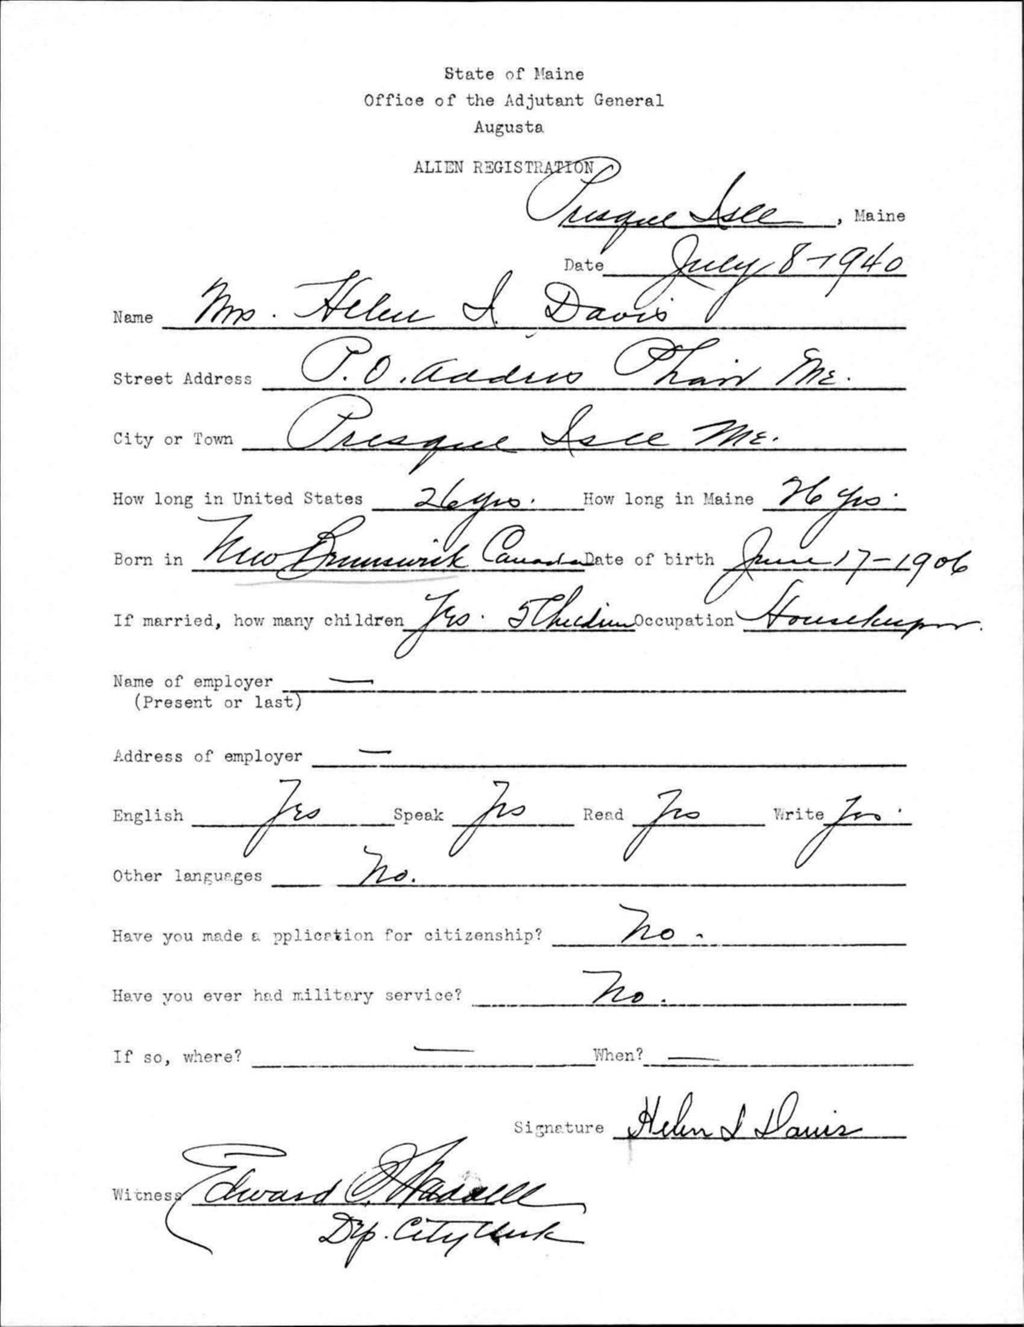 State of Maine
Office of the Adjutant General
Augusta
ALIEN REGISTRATION
Presque Isle, Maine
Date July 8-1940
Name Mrs. Helen I. Davis
Street Address P.O. Address Phair Me.
City or Town Presque Isle Me.
How long in United States 26 yrs. How long in Maine 26 yrs.
Born in New Brunswick Canada Date of birth June 17-1906
If married, how many children Yes. 5 Children Occupation Housekeeper.
Name of employer —
(Present or last)
Address of employer —
English Yes Speak Yes Read Yes Write Yes.
Other languages No.
Have you made a pplication for citizenship? No.
Have you ever had military service? No.
If so, where? — When? —
Signature Helen I Davis
Witness Edward Waddell
Dep. City Clerk